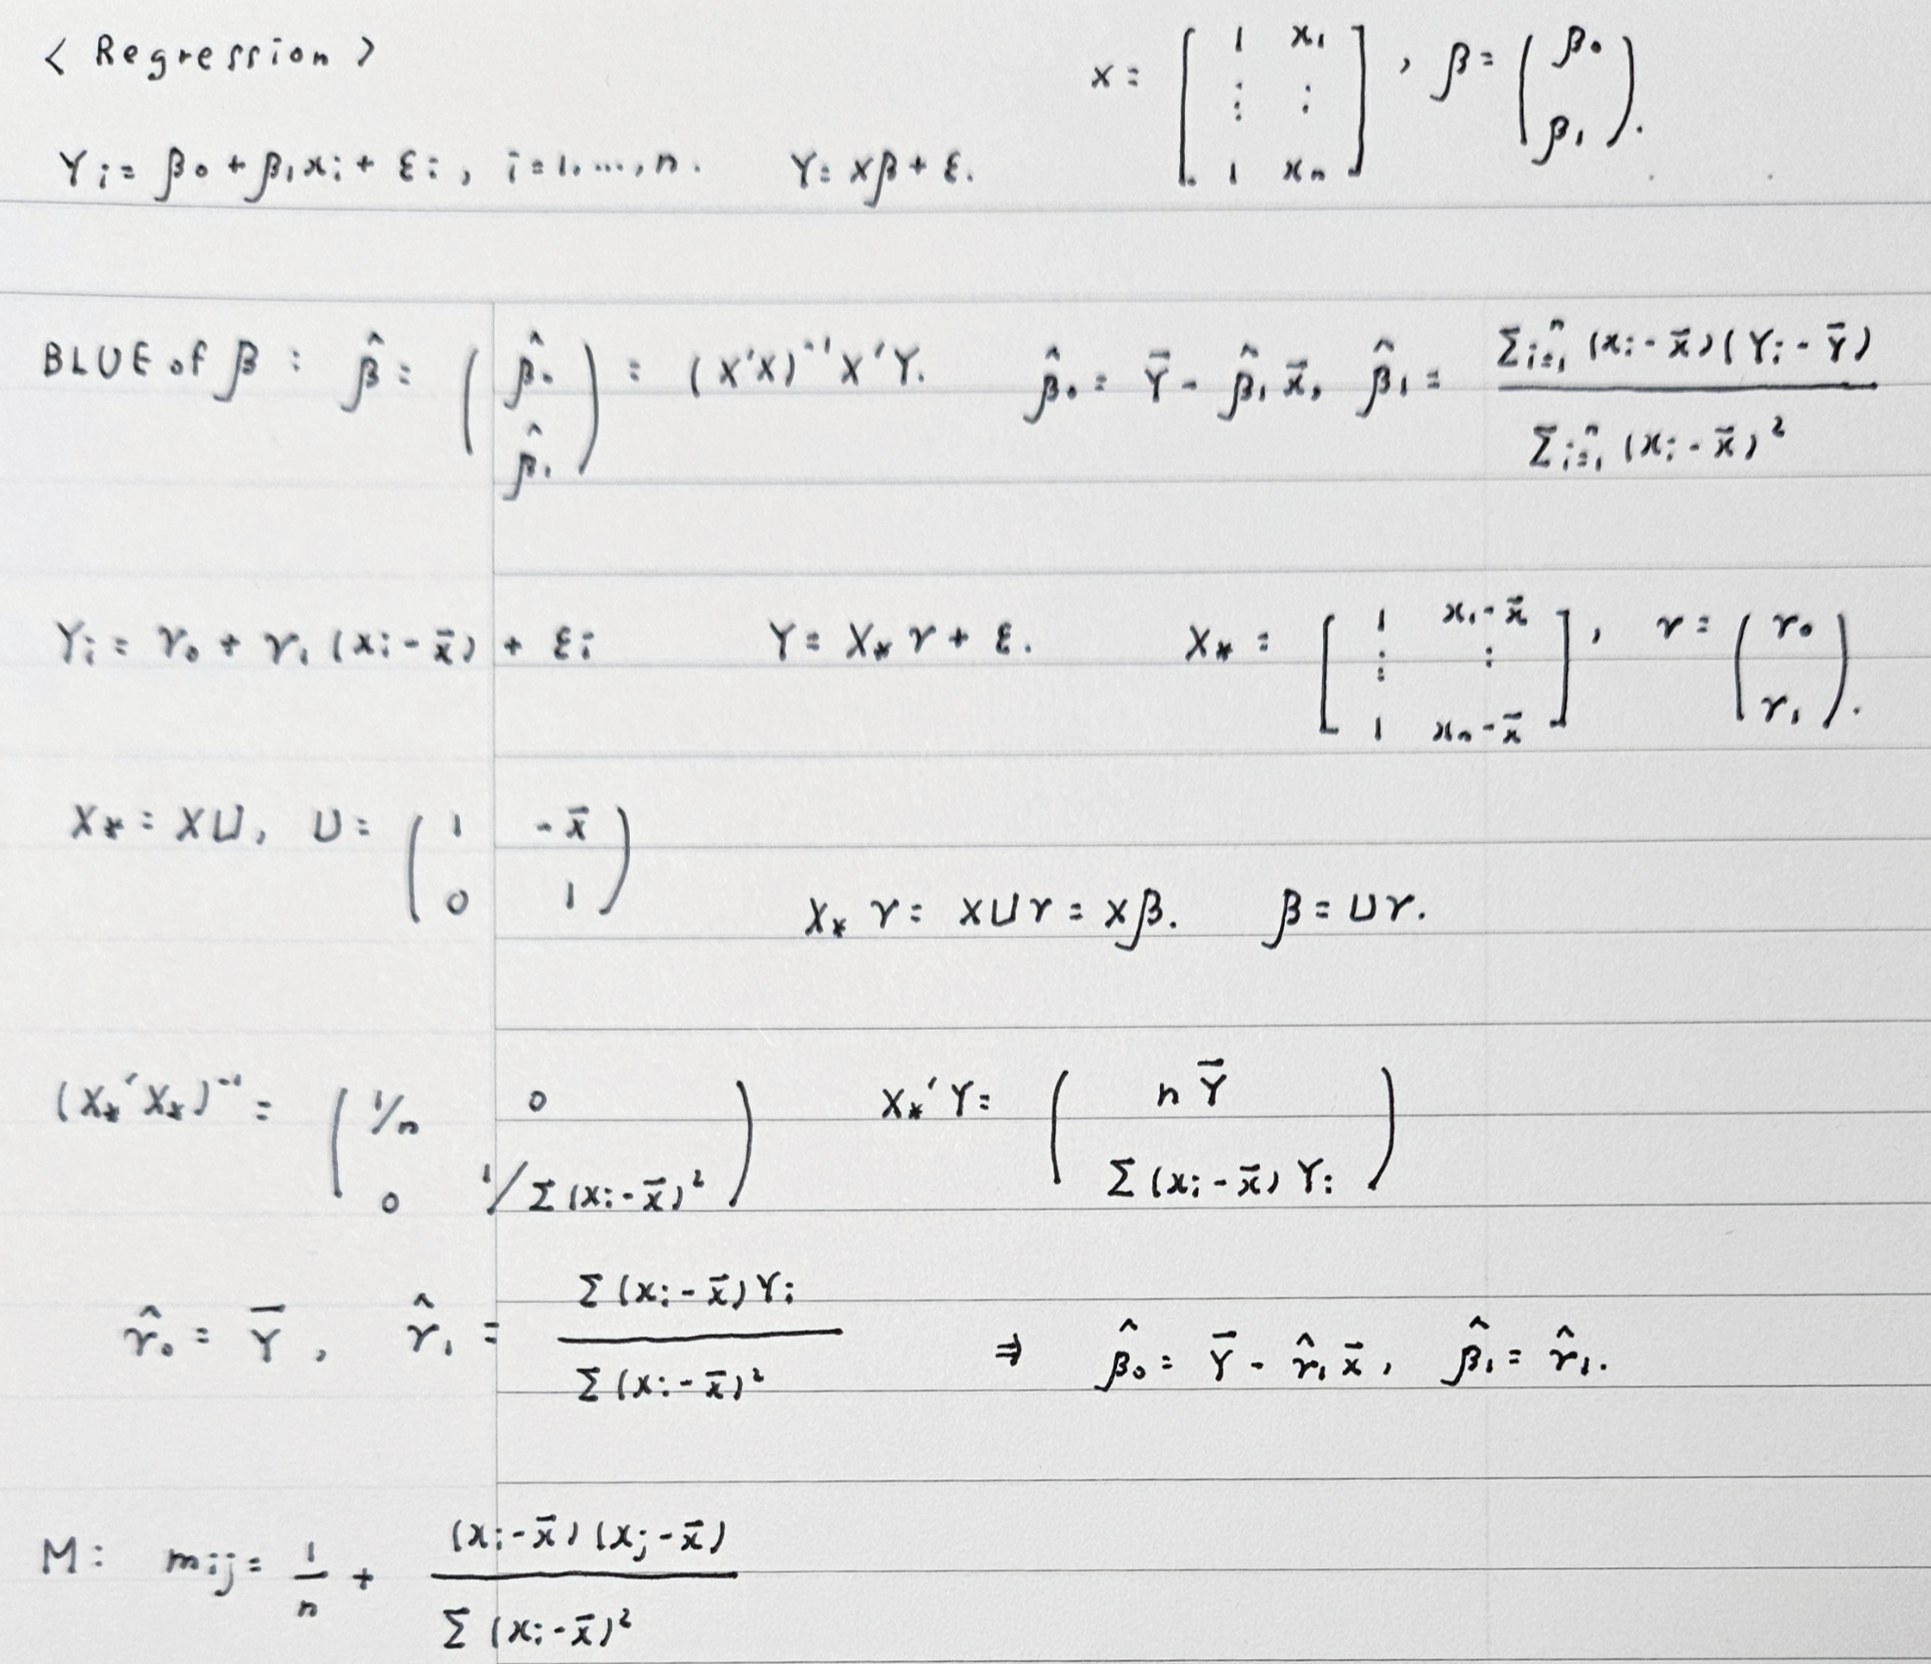 < Regression >
Yi = β0 + β1xi + εi, i = 1, ..., n. Y = Xβ + ε. X = [ 1 x1 ; ⋮ ⋮ ; 1 xn ], β = ( β0 ; β1 ).
BLUE of β : β̂ = ( β̂0 ; β̂1 ) = (X′X)⁻¹X′Y. β̂0 = Ȳ - β̂1 x̄, β̂1 = Σi=1^n (xi - x̄)(Yi - Ȳ) / Σi=1^n (xi - x̄)²
Yi = γ0 + γ1 (xi - x̄) + εi Y = X* γ + ε. X* = [ 1 x1 - x̄ ; ⋮ ⋮ ; 1 xn - x̄ ], γ = ( γ0 ; γ1 ).
X* = XU, U = ( 1 -x̄ ; 0 1 )
X* γ = XUγ = Xβ. β = Uγ.
(X*′X*)⁻¹ = ( 1/n 0 ; 0 1/Σ(xi - x̄)² ) X*′Y = ( nȲ ; Σ(xi - x̄) Yi )
γ̂0 = Ȳ, γ̂1 = Σ(xi - x̄)Yi / Σ(xi - x̄)² ⇒ β̂0 = Ȳ - γ̂1 x̄, β̂1 = γ̂1.
M : mij = 1/n + (xi - x̄)(xj - x̄) / Σ(xi - x̄)²